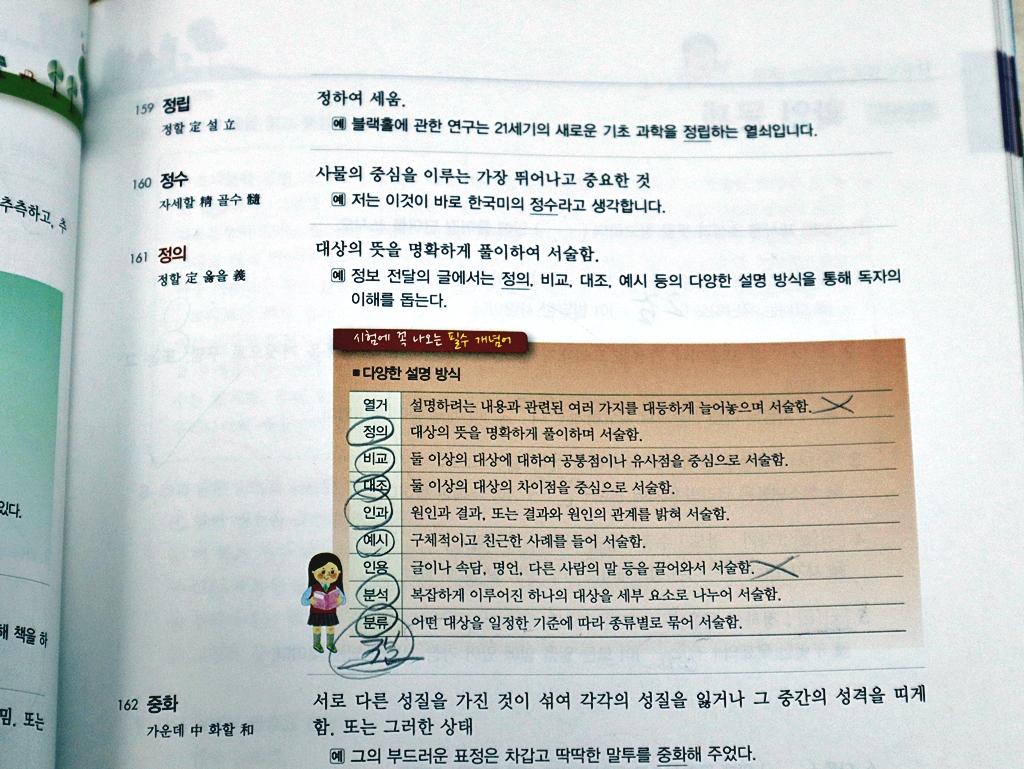 159 정립
정할 定 설 立
정하여 세움.
예 블랙홀에 관한 연구는 21세기의 새로운 기초 과학을 정립하는 열쇠입니다.
160 정수
자세할 精 골수 髓
사물의 중심을 이루는 가장 뛰어나고 중요한 것
예 저는 이것이 바로 한국미의 정수라고 생각합니다.
161 정의
정할 定 옳을 義
대상의 뜻을 명확하게 풀이하여 서술함.
예 정보 전달의 글에서는 정의, 비교, 대조, 예시 등의 다양한 설명 방식을 통해 독자의
이해를 돕는다.
시험에 꼭 나오는 필수 개념어
■ 다양한 설명 방식
열거 설명하려는 내용과 관련된 여러 가지를 대등하게 늘어놓으며 서술함.
정의 대상의 뜻을 명확하게 풀이하며 서술함.
비교 둘 이상의 대상에 대하여 공통점이나 유사점을 중심으로 서술함.
대조 둘 이상의 대상의 차이점을 중심으로 서술함.
인과 원인과 결과, 또는 결과와 원인의 관계를 밝혀 서술함.
예시 구체적이고 친근한 사례를 들어 서술함.
인용 글이나 속담, 명언, 다른 사람의 말 등을 끌어와서 서술함.
분석 복잡하게 이루어진 하나의 대상을 세부 요소로 나누어 서술함.
분류 어떤 대상을 일정한 기준에 따라 종류별로 묶어 서술함.
162 중화
가운데 中 화할 和
서로 다른 성질을 가진 것이 섞여 각각의 성질을 잃거나 그 중간의 성격을 띠게
함. 또는 그러한 상태
예 그의 부드러운 표정은 차갑고 딱딱한 말투를 중화해 주었다.
추측하고, 추
있다.
해 책을 하
밈. 또는